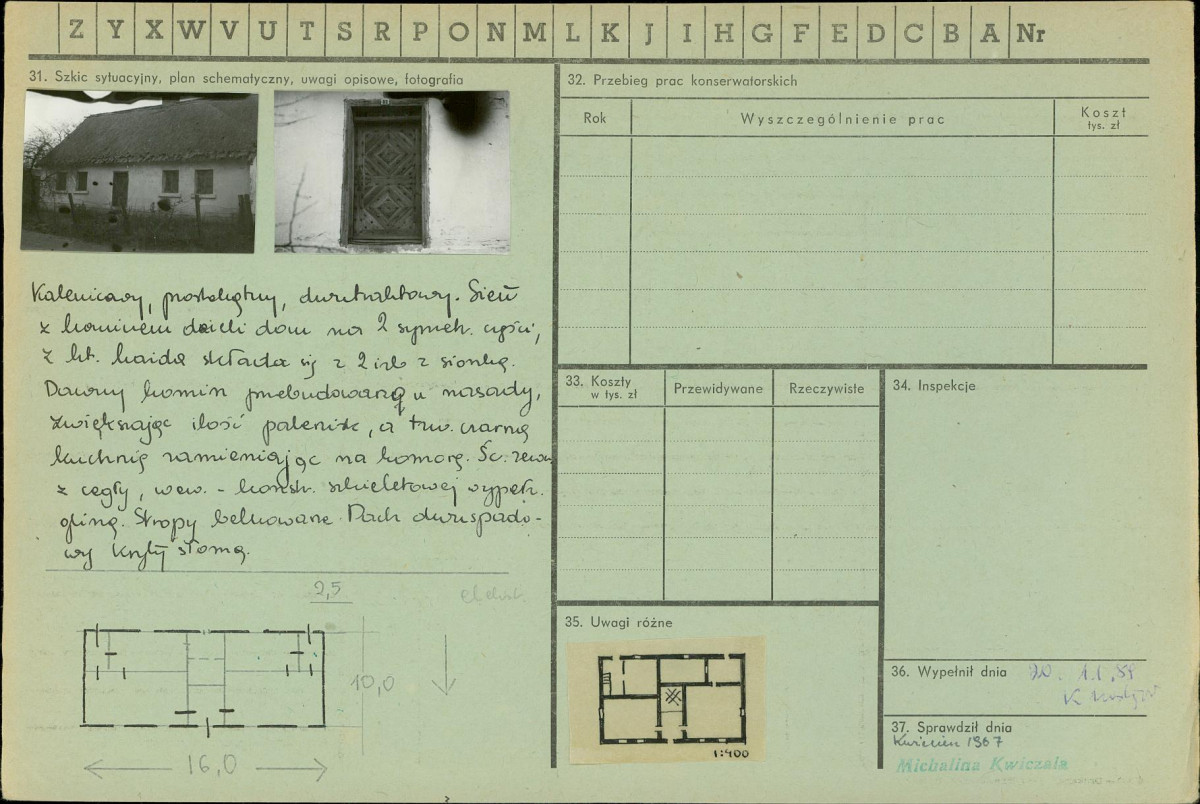 Z Y X W V U T S R P O N M L K J I H G F E D C B A Nr
31. Szkic sytuacyjny, plan schematyczny, uwagi opisowe, fotografia
Kalenicowy, prostokątny, dwutraktowy. Sień
z kominem dzieli dom na 2 symetr. części,
z kt. każda składa się z 2 izb z sionką.
Dawny komin przebudowano u nasady,
zwiększając ilość palenisk, a tzw. czarną
kuchnię zamieniając na komorę. Śc. zewn.
z cegły, wew. - konstr. szkieletowej wypełn.
gliną. Stropy belkowane. Dach dwuspado-
wy kryty słomą.
2,5
10,0
16,0
32. Przebieg prac konserwatorskich
Rok
Wyszczególnienie prac
Koszt
tys. zł
33. Koszty
w tys. zł
Przewidywane
Rzeczywiste
34. Inspekcje
35. Uwagi różne
1:400
36. Wypełnił dnia
K
37. Sprawdził dnia
Kwiecień 1967
Michalina Kwiczala